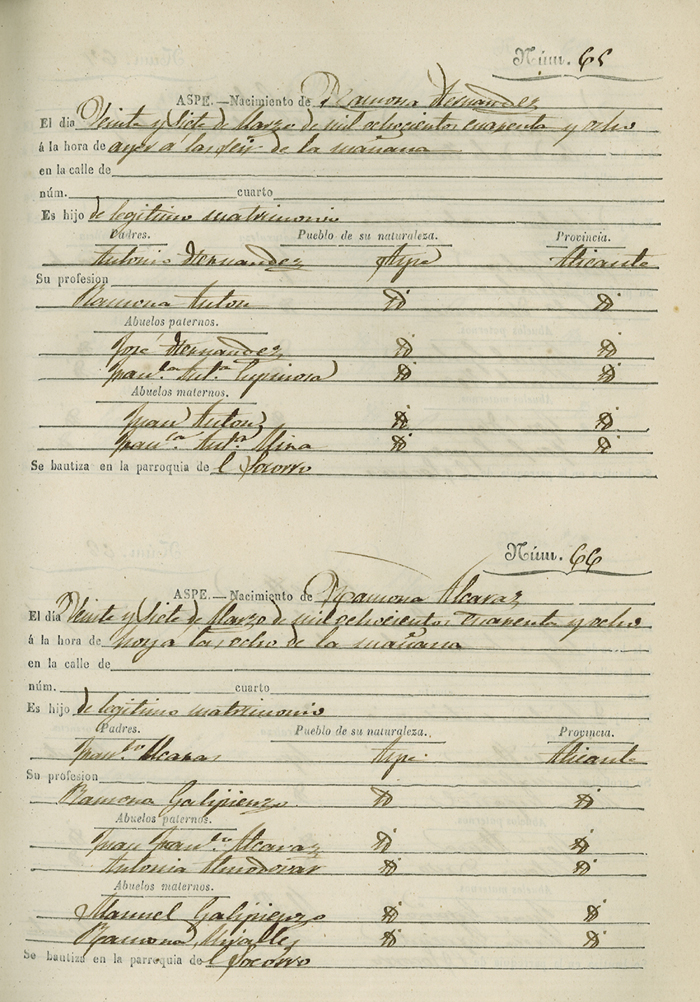 Núm. 65
ASPE.—Nacimiento de Ramona Hernandez
El dia Veinte y Siete de Marzo de mil ochocientos cuarenta y ocho
á la hora de ayer a las seis de la mañana
en la calle de
núm. cuarto
Es hijo de legitimo matrimonio
Padres. Pueblo de su naturaleza. Provincia.
Antonio Hernandez Aspe Alicante
Su profesion
Ramona Anton Yd Yd
Abuelos paternos.
José Hernandez Yd Yd
Fran.ca Ant.a Espinosa Yd Yd
Abuelos maternos.
Juan Anton Yd Yd
Fran.ca Ant.a Mira Yd Yd
Se bautiza en la parroquia de l Socorro
Núm. 66
ASPE.—Nacimiento de Ramona Alcaraz
El dia Veinte y Siete de Marzo de mil ochocientos cuarenta y ocho
á la hora de hoy a las ocho de la mañana
en la calle de
núm. cuarto
Es hijo de legitimo matrimonio
Padres. Pueblo de su naturaleza. Provincia.
Fran.co Alcaraz Aspe Alicante
Su profesion
Ramona Galipienzo Yd Yd
Abuelos paternos.
Juan Fran.co Alcaraz Yd Yd
Antonia Almodovar Yd Yd
Abuelos maternos.
Manuel Galipienzo Yd Yd
Ramona Miralles Yd Yd
Se bautiza en la parroquia de l Socorro